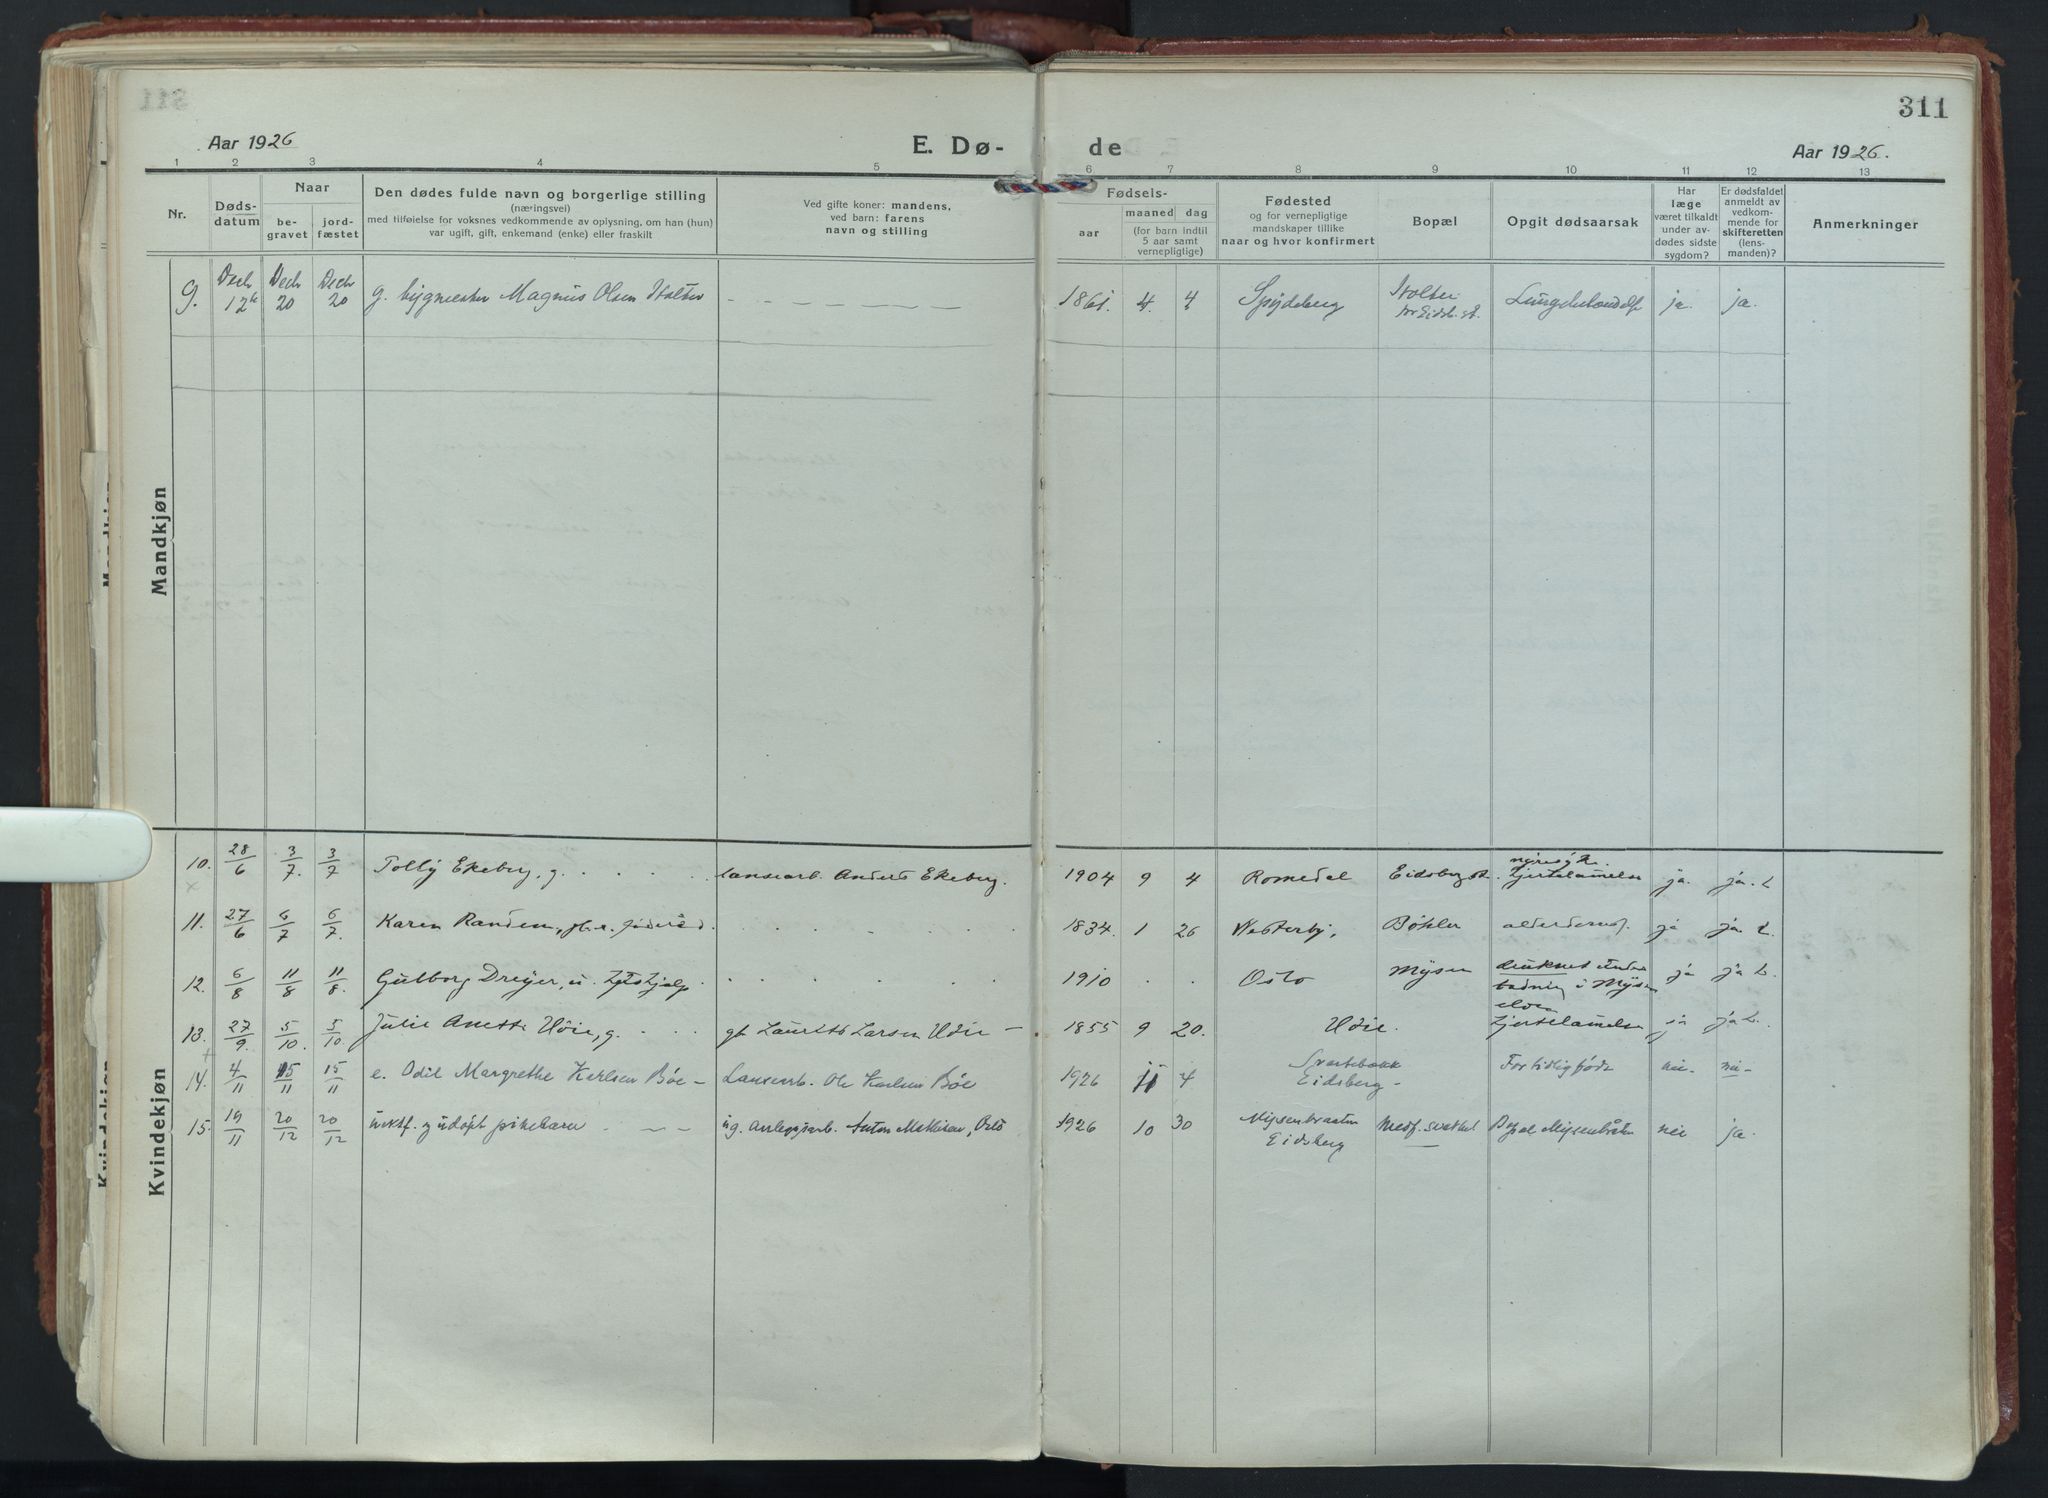 311
Aar 1926
E. Dø-
de
Aar 1926.
1 2 3 4 5 6 7 8 9 10 11 12 13
Nr.
Døds-
datum
Naar
be-
gravet
jord-
fæstet
Den dødes fulde navn og borgerlige stilling
(næringsvei)
med tilføielse for voksnes vedkommende av oplysning, om han (hun)
var ugift, gift, enkemand (enke) eller fraskilt
Ved gifte koner: mandens,
ved barn: farens
navn og stilling
Fødsels-
aar
maaned dag
(for barn indtil
5 aar samt
vernepligtige)
Fødested
og for vernepligtige
mandskaper tillike
naar og hvor konfirmert
Bopæl
Opgit dødsaarsak
Har
læge
været tilkaldt
under av-
dødes sidste
sygdom?
Er dødsfaldet
anmeldt av
vedkom-
mende for
skifteretten
(lens-
manden)?
Anmerkninger
Mandkjøn
9. Decbr 12te Decbr 20 Decbr 20 g. bygmester Magnus Olsen Stolter 1861. 4. 4 Spydeberg Stolter ja. ja.
Kvindekjøn
10. 28/6 3/7. 3/7 Ekeberg, g. Anders Ekeberg. 1904 9 4 Romedal Eidsberg st. nyresyke. hjertelamelse ja. ja. L
11. 27/6 6/7 6/7. Karen Randem, 1834. 1 26 Vesterby, Bøhler ja ja. L.
12. 6/8 11/8 11/8. Gulborg Dreyer, u. 1910 Oslo Mysen druknet under badning i Mysen elven ja ja L.
13. 27/9. 5/10. 5/10. Julie Anette Höie, g. gb. Laurits Larsen Höie – 1855 9 20. Höie. hjertelamelse ja ja L.
14. 4/11 15/11 15/11 e. Odil Margrethe Karlsen Böe – Ole Karlsen Böe 1926 11 4 Eidsberg – For tidlig född nei. nei –
15. 19/11 20/12 20/12 uektef. udöpt pikebarn ug. Anton Mathisen, Oslo 1926 10 30 Mysenbraaten Eidsberg Mysenbråten nei ja.